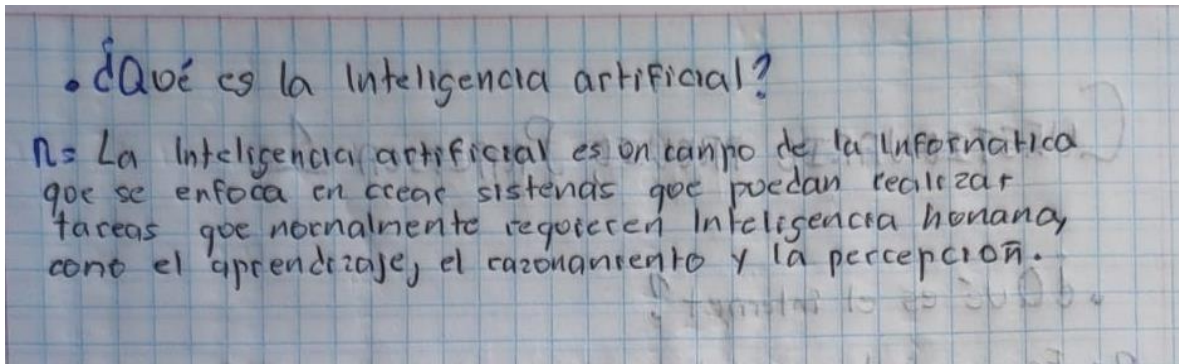 • ¿Qué es la Inteligencia artificial?
R= La Inteligencia artificial es un campo de la Informatica
que se enfoca en crear sistemas que puedan realizar
tareas que normalmente requieren Inteligencia humana,
como el aprendizaje, el razonamiento y la percepción.